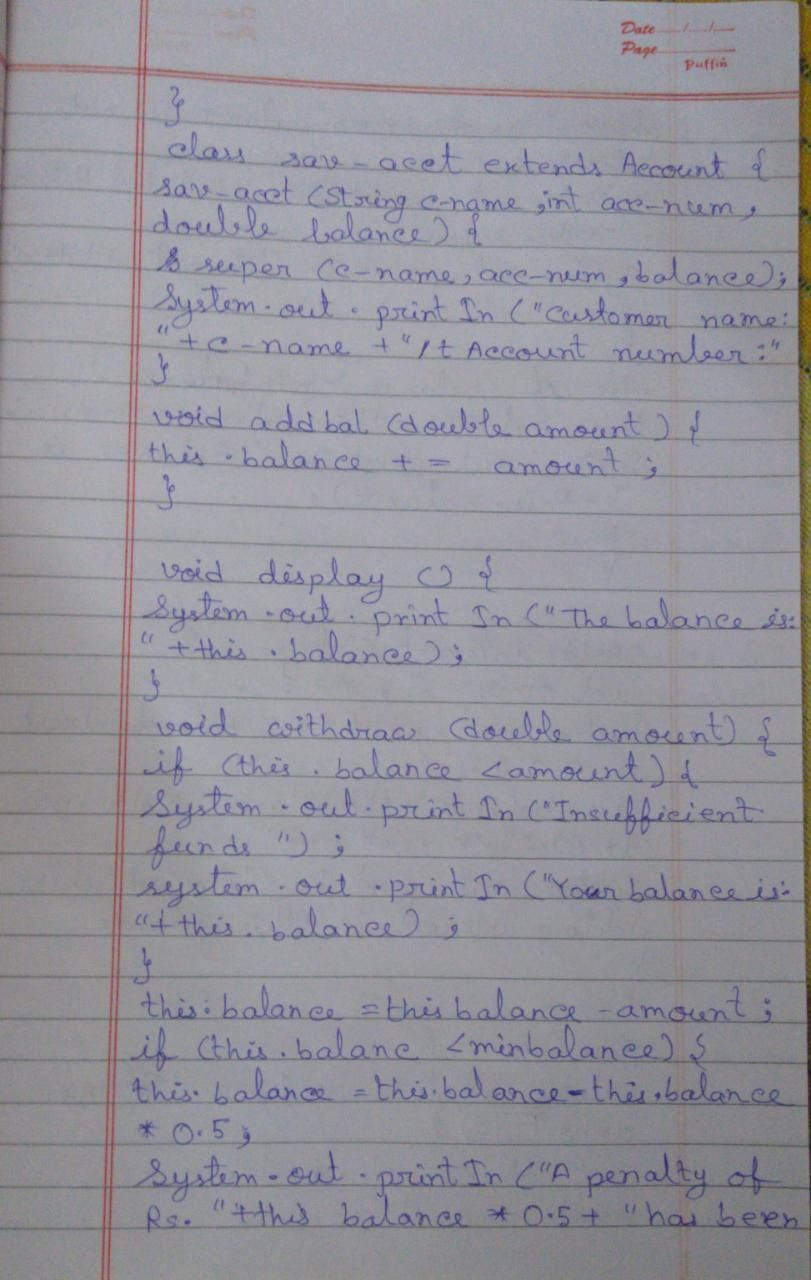 Date __/__/__
Page ________
Puffin
}
class sav-acct extends Account {
sav-acct (String c-name, int acc-num,
double balance) {
super (c-name, acc-num, balance);
System.out.print In ("customer name:
"+c-name +"/t Account number:"
}
void addbal (double amount) {
this.balance += amount;
}
void display () {
System.out.print In ("The balance is:
"+this.balance);
}
void withdraw (double amount) {
if (this.balance <amount) {
System.out.print In ("Insufficient
funds ");
system.out.print In ("Your balance is:
"+this.balance);
}
this.balance =this balance -amount;
if (this.balanc <minbalance) {
this.balance =this.balance-this.balance
* 0.5;
System.out.print In ("A penalty of
Rs. "+this balance * 0.5+ "has been